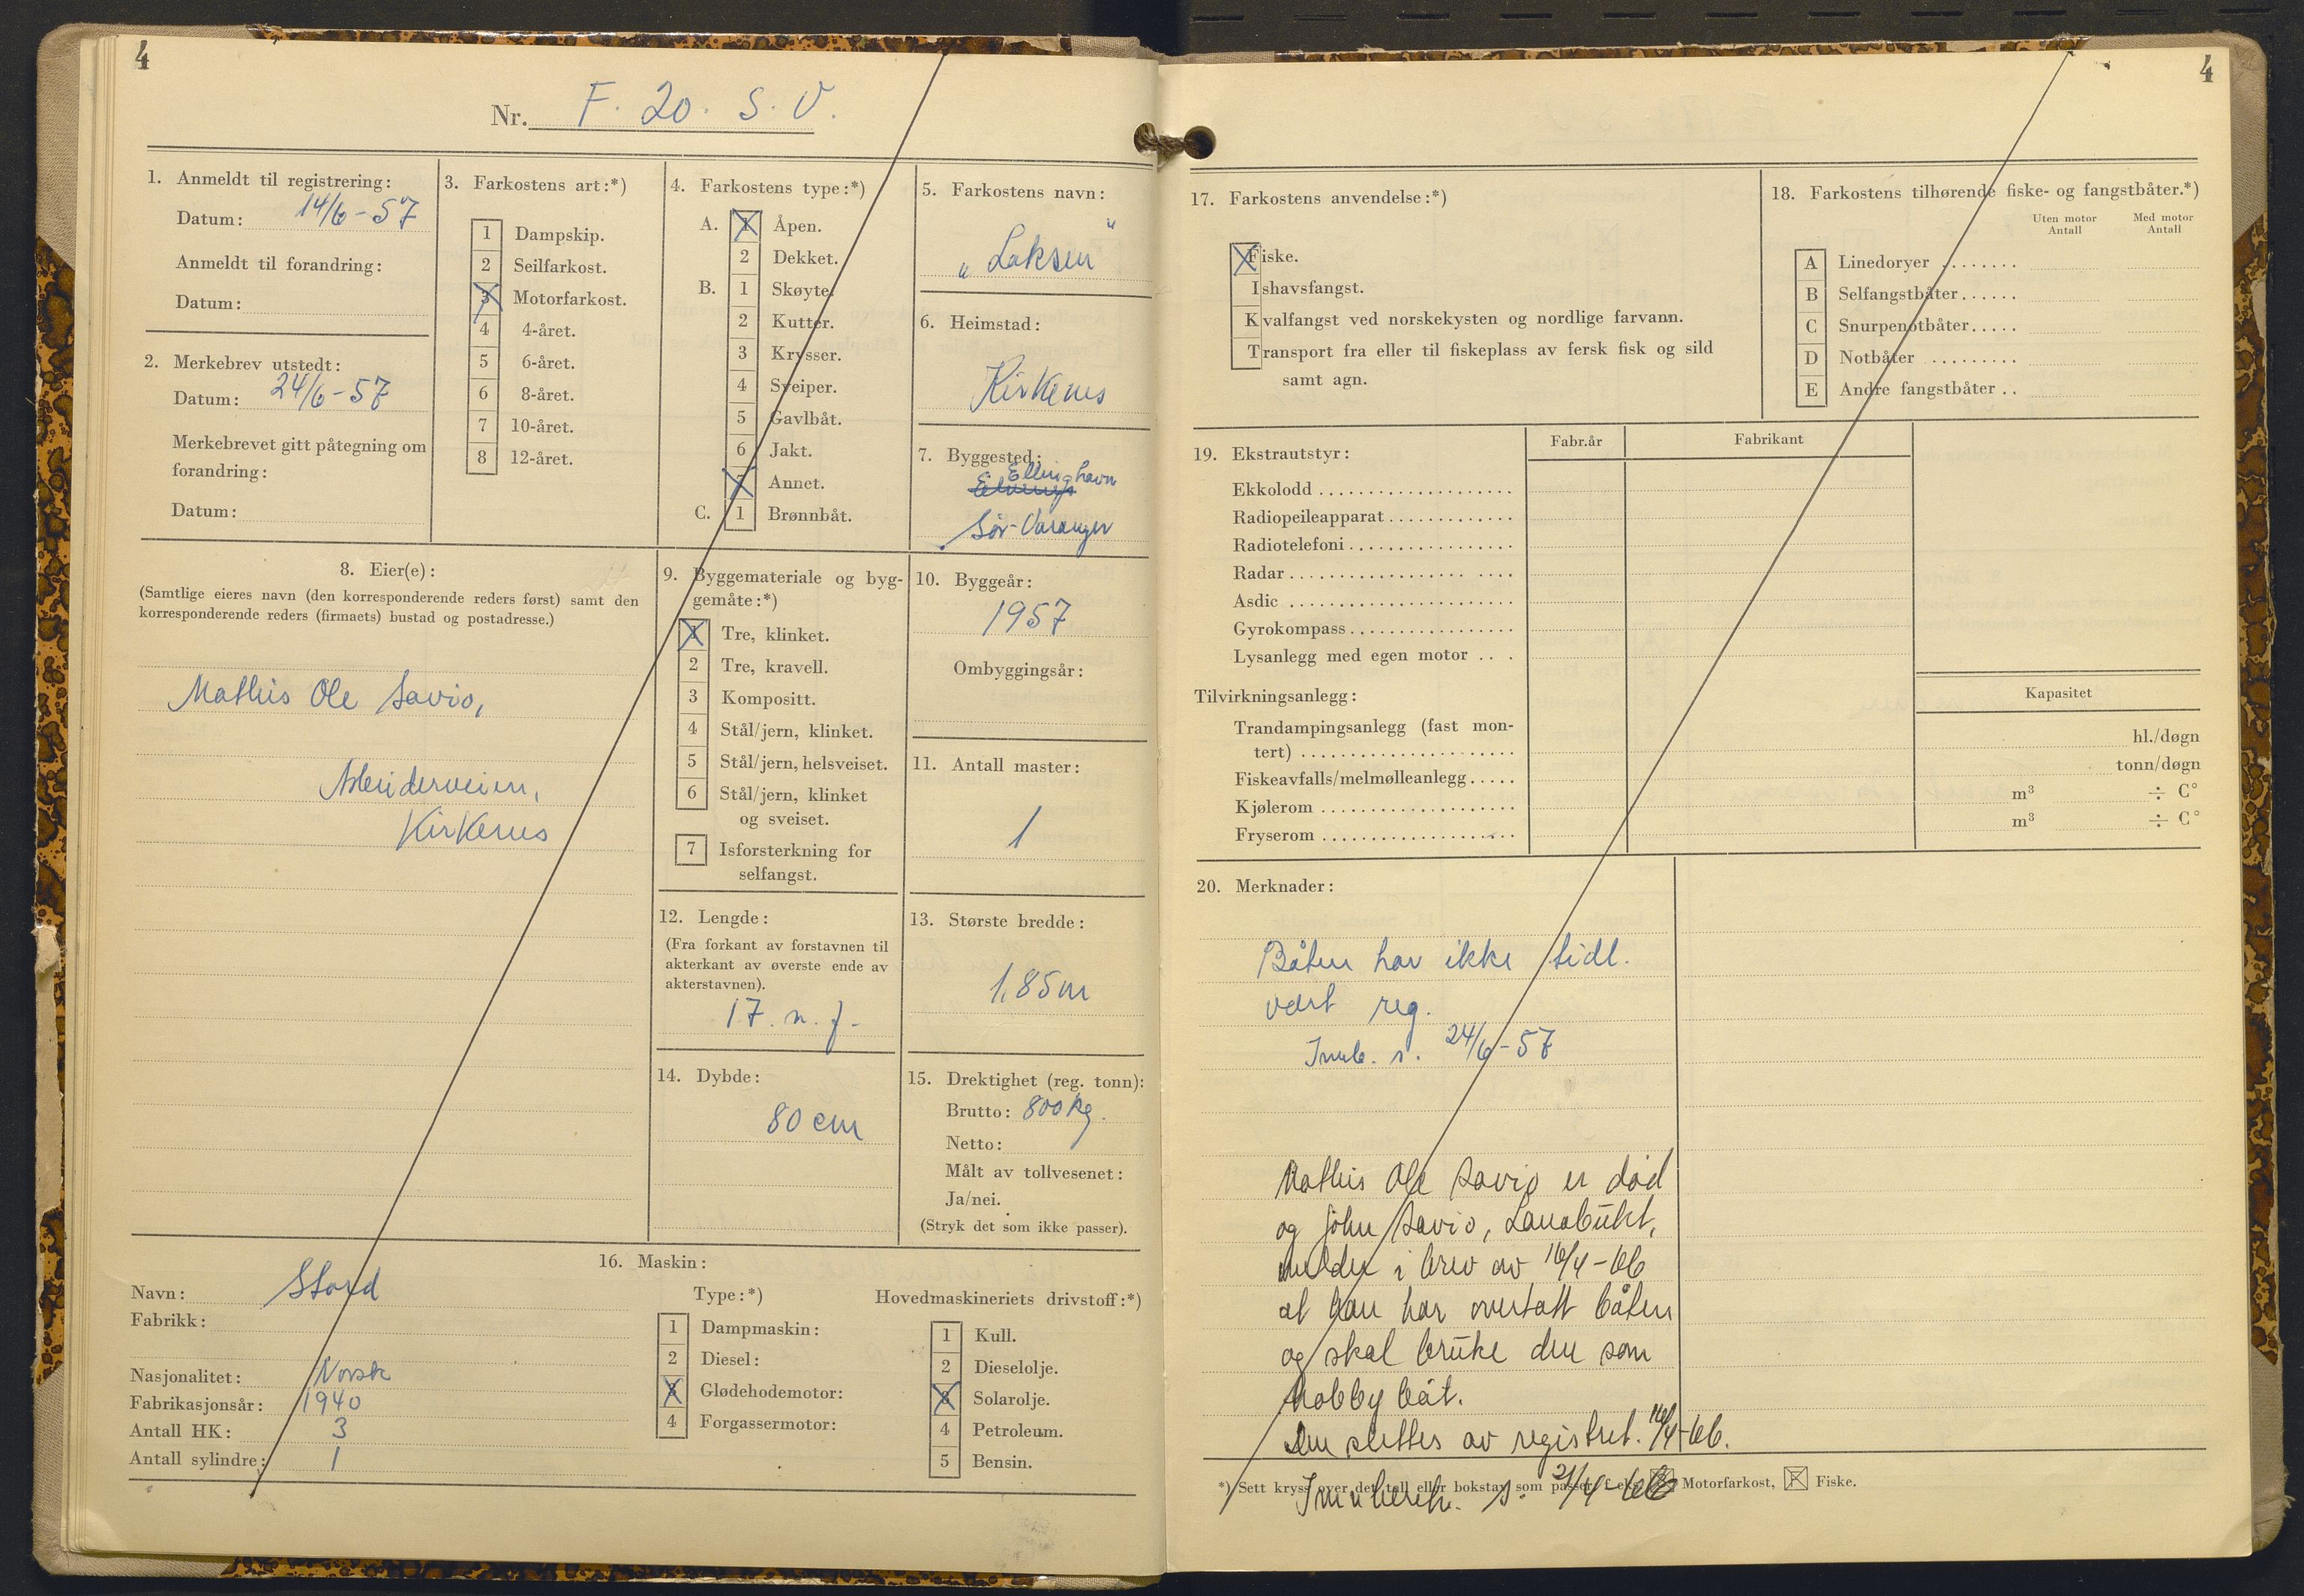 4
Nr. F. 20. S. V.
1. Anmeldt til registrering:
Datum: 14/6-57
Anmeldt til forandring:
Datum:
2. Merkebrev utstedt:
Datum: 24/6-57
Merkebrevet gitt påtegning om
forandring:
Datum:
3. Farkostens art:*)
1 Dampskip.
2 Seilfarkost.
3 Motorfarkost.
4 4-året.
5 6-året.
6 8-året.
7 10-året.
8 12-året.
4. Farkostens type:*)
A. 1 Åpen.
2 Dekket.
B. 1 Skøyte.
2 Kutter.
3 Krysser.
4 Sveiper.
5 Gavlbåt.
6 Jakt.
7 Annet.
C. 1 Brønnbåt.
5. Farkostens navn:
„Laksen"
6. Heimstad:
Kirkenes
7. Byggested:
Ellinghavn
Sør-Varanger
8. Eier(e):
(Samtlige eieres navn (den korresponderende reders først) samt den
korresponderende reders (firmaets) bustad og postadresse.)
Mathis Ole Savio,
Kirkenes
9. Byggemateriale og byg-
gemåte:*)
1 Tre, klinket.
2 Tre, kravell.
3 Kompositt.
4 Stål/jern, klinket.
5 Stål/jern, helsveiset.
6 Stål/jern, klinket
og sveiset.
7 Isforsterkning for
selfangst.
10. Byggeår:
1957
Ombyggingsår:
11. Antall master:
1
12. Lengde:
(Fra forkant av forstavnen til
akterkant av øverste ende av
akterstavnen).
17. n. f.
13. Største bredde:
1,85 m
14. Dybde:
80 cm
15. Drektighet (reg. tonn):
Brutto: 800 kg.
Netto:
Målt av tollvesenet:
Ja/nei.
(Stryk det som ikke passer).
16. Maskin:
Navn: Stord
Fabrikk:
Nasjonalitet: Norsk
Fabrikasjonsår: 1940
Antall HK: 3
Antall sylindre: 1
Type:*)
1 Dampmaskin:
2 Diesel:
3 Glødehodemotor:
4 Forgassermotor:
Hovedmaskineriets drivstoff:*)
1 Kull.
2 Dieselolje.
3 Solarolje.
4 Petroleum.
5 Bensin.
4
17. Farkostens anvendelse:*)
Fiske.
Ishavsfangst.
Kvalfangst ved norskekysten og nordlige farvann.
Transport fra eller til fiskeplass av fersk fisk og sild
samt agn.
18. Farkostens tilhørende fiske- og fangstbåter.*)
Uten motor Med motor
Antall Antall
A Linedoryer
B Selfangstbåter
C Snurpenotbåter
D Notbåter
E Andre fangstbåter
19. Ekstrautstyr: Fabr.år Fabrikant
Ekkolodd
Radiopeileapparat
Radiotelefoni
Radar
Asdic
Gyrokompass
Lysanlegg med egen motor
Tilvirkningsanlegg: Kapasitet
Trandampingsanlegg (fast mon-
tert) hl./døgn
Fiskeavfalls/melmølleanlegg tonn/døgn
Kjølerom m³ ÷ C°
Fryserom m³ ÷ C°
20. Merknader:
Båten har ikke tidl.
vært reg.
Innb. s. 24/6-57
Mathis Ole Savio er død
og John Savio, Lanabukt,
melder i brev av 16/4-66
at han har overtatt båten
og skal bruke den som
hobby båt.
Den slettes av registret. 16/4-66.
*) Sett kryss over det tall eller bokstav som passer, f.eks. 3 Motorfarkost, F Fiske.
Innberetn. s. 21/4-66